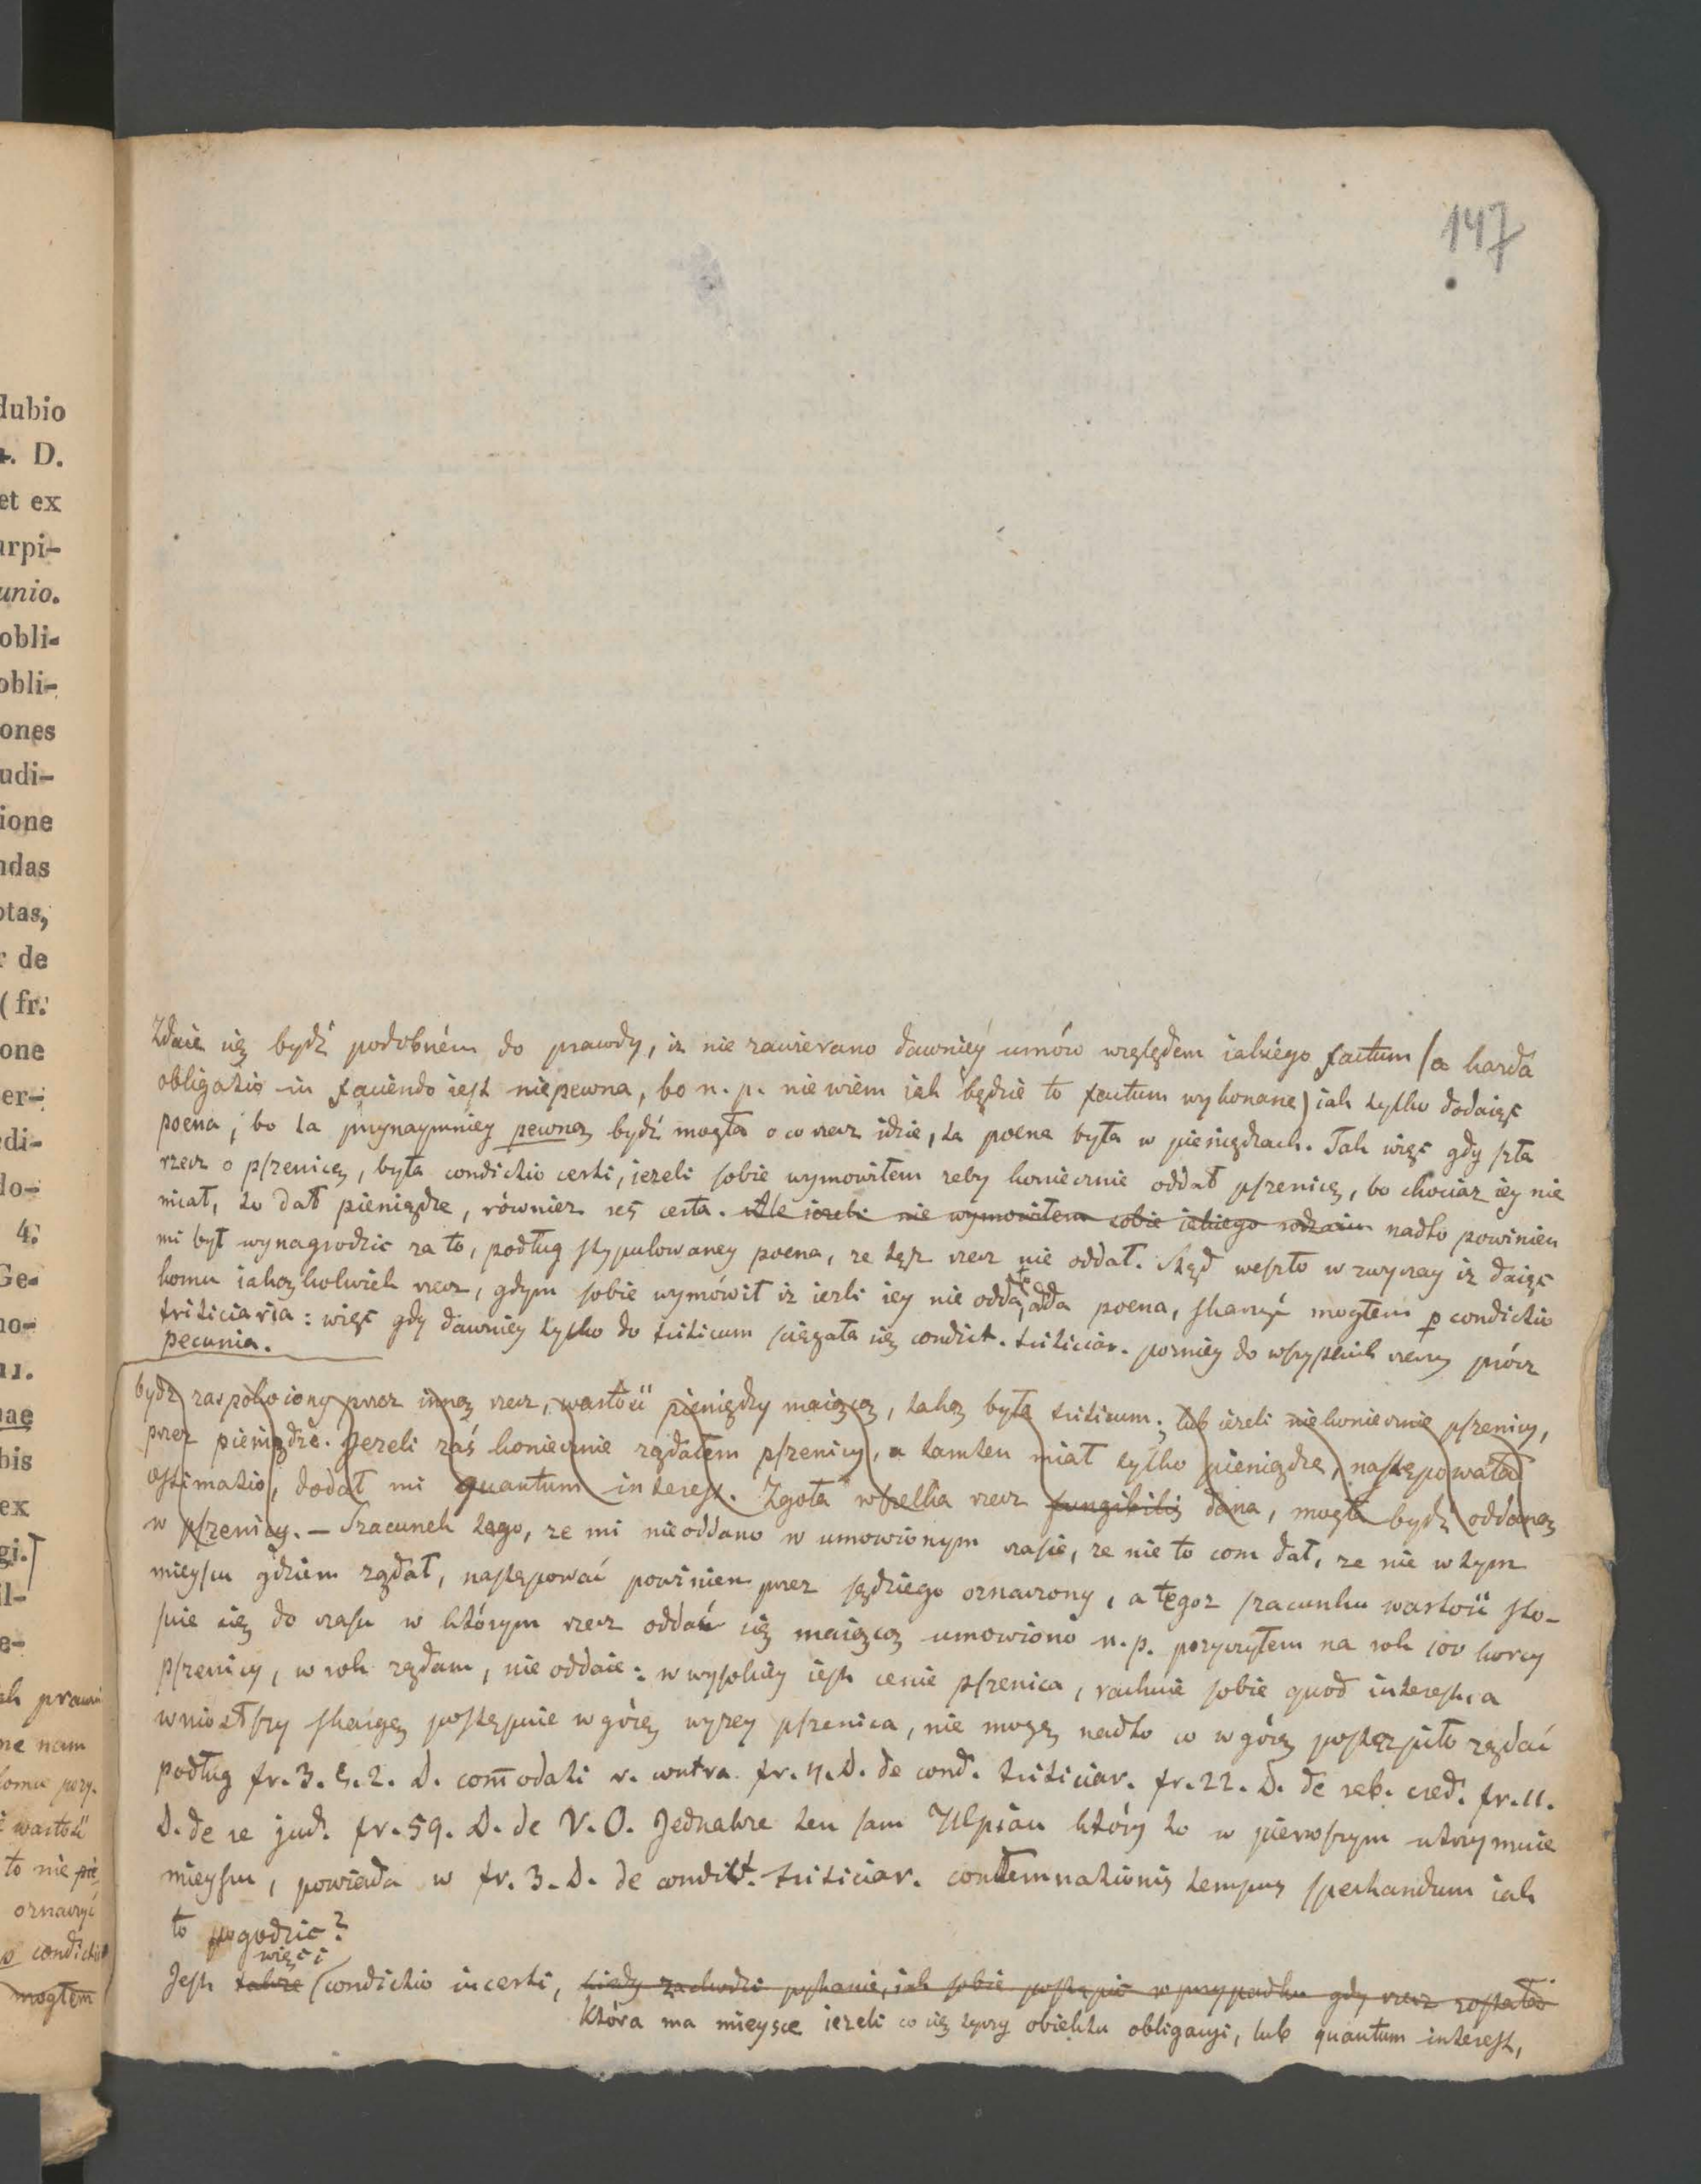 147
Zdaie się bydź podobném do prawdy, iz nie zawierano dawniéy umów względem iakiego factum (a kazda
obligatio in faciendo iest niepewna, bo n. p. nie wiem iak będzie to factum wykonane) iak tylko dodaiąc
poena, bo ta przynaymniey pewną bydź mogła o co rzecz idzie, ta poena była w pieniądzach. Tak więc gdy szła
rzecz o pszenicę, była condictio certi, iezeli sobie wymowiłem zeby koniecznie oddał pszenicę, bo chociaz iey nie
miał, to dał pieniądze, również res certa. Ale iezeli nie wymowiłem sobie iakiego rodzaiu nadto powinien
mi był wynagrodzic za to, podług stypulowaney poena, ze tęz rzecz nie oddał. Skąd weszło w zwyczay iz daiąc
komu iakążkolwiek rzecz, gdym sobie wymówił iz iezli iey nie odda, to da poena, skarzyć mogłem p condictio
triticiaria: więc gdy dawniey tylko do triticum ściągała się condict. triticiar. pozniey do wszystkich rzeczy prócz
pecunia.
bydź zaspokoiony przez inną rzecz, wartość pieniędzy maiącą, taką była triticum; lub iezeli niekoniecznie pszenicy,
przez pieniądze. Jezeli zaś koniecznie ządałem pszenicy, a tamten miał tylko pieniądze, następowała
æstimatio, dodał mi quantum interest. Zgoła wszelka rzecz fungibilis dana, mogła bydź oddaną
w pszenicy. — Szacunek tego, ze mi nieoddano w umowionym czasie, ze nie to com dał, ze nie w tym
mieyscu gdziem ządał, następować powinien przez sędziego oznaczony, a tegoz szacunku wartość sto-
suie się do czasu w którym rzecz oddać się maiącą umowiono n. p. pozyczyłem na rok 100 korcy
pszenicy, w rok ządam, nie oddaie: w wysokiey iest cenie pszenica, rachuie sobie quod interest, a
wniosłszy skargę postępuie w górę wyzey pszenica, nie mogę nadto co w górę postąpiło ządać
podług fr. 3. §. 2. D. com̄odati v. contra fr. 4. D. de cond. triticiar. fr. 22. D. de reb. cred. fr. 11.
D. de re jud. fr. 59. D. de V. O. Jednakze ten sam Ulpian który to w pierwszym utrzymuie
mieyscu, powiada w fr. 3. D. de condict. triticiar. condemnationis tempus spectandum iak
to pogodzic?
więc i
Jest takze condictio incerti, kiedy zachodzi pytanie, iak sobie postąpić w przypadku gdy rzecz
Która ma mieysce iezeli co się tyczy obiektu obligacyi, lub quantum interest,